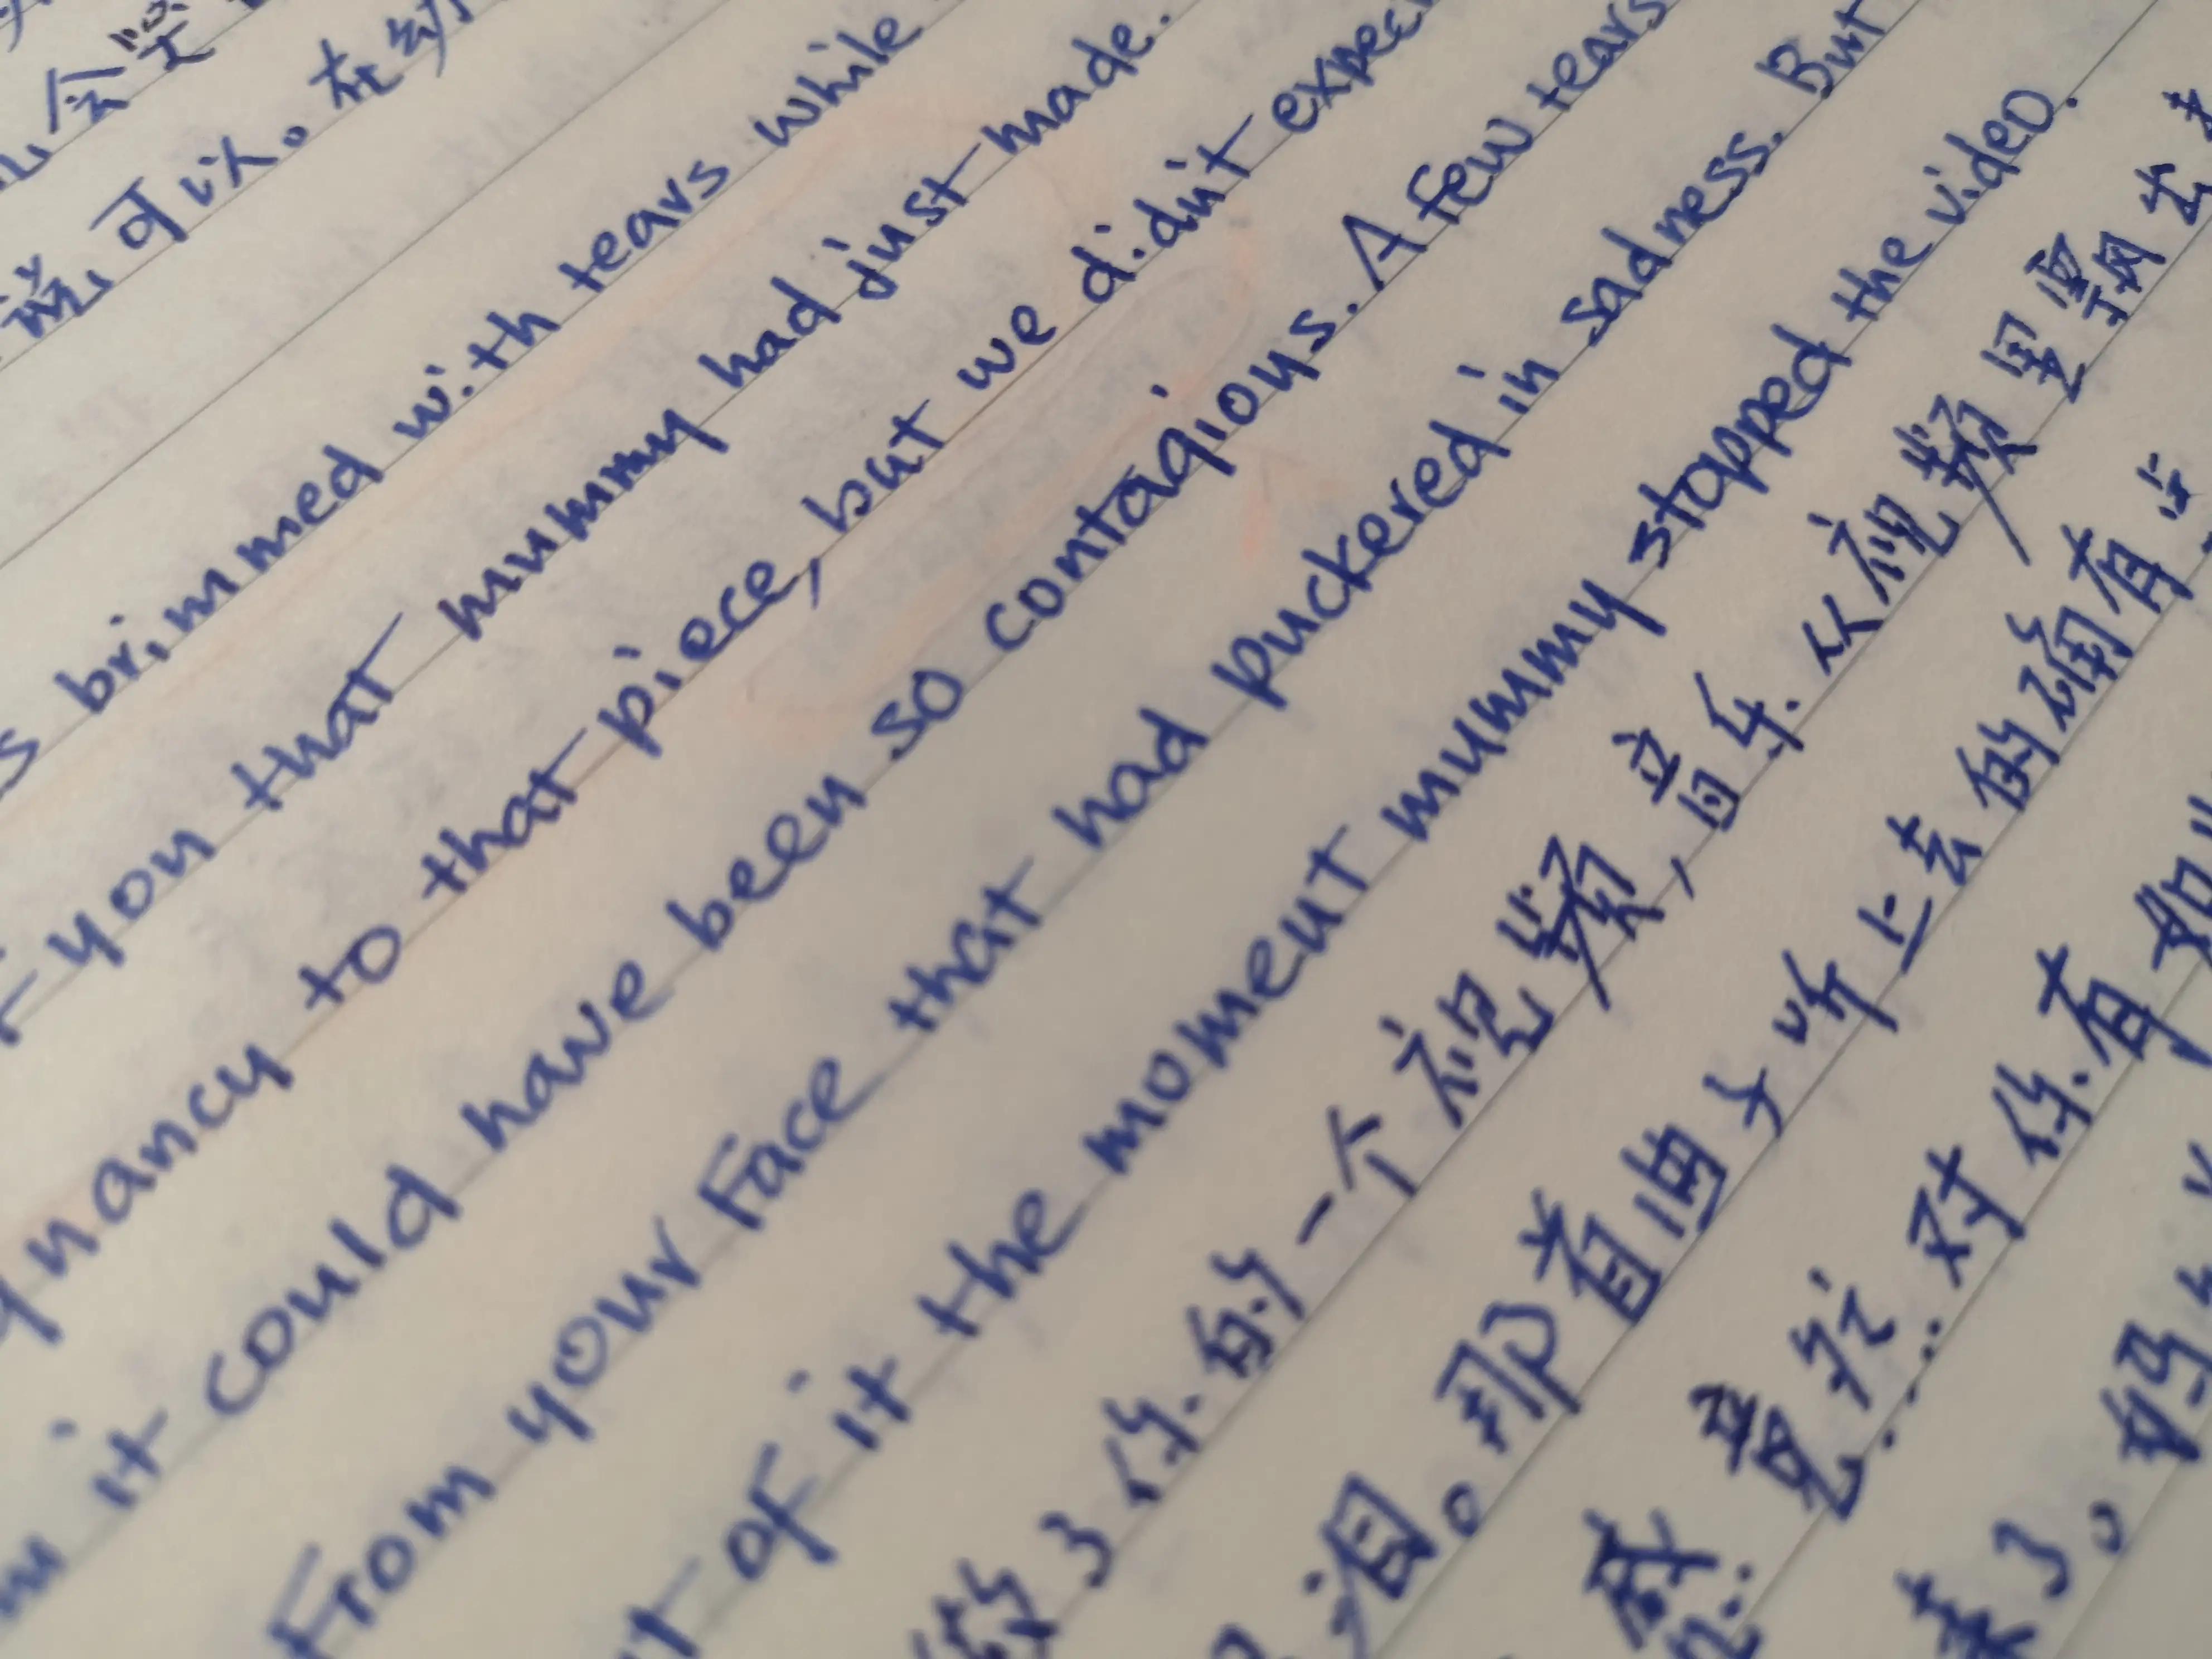 会堂
说,可以。在幼
brimmed with tears while
you that mummy had just made.
to that piece, but we didn't expec
it could have been so contagious. A few tears
From your face that had puckered in sadness. But
of it the moment mummy stopped the video.
做了你的一个视频,音乐从视频里飘出来
泪。那首曲子听上去的确有
感竟然对你有如
来了。妈